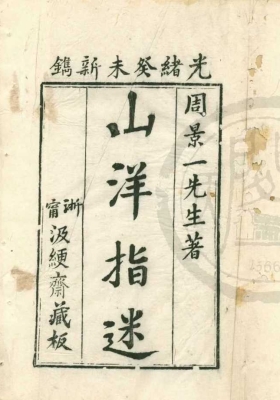 光緒癸未新鐫
周景一先生著
山洋指迷
浙甯
汲綆齋藏板